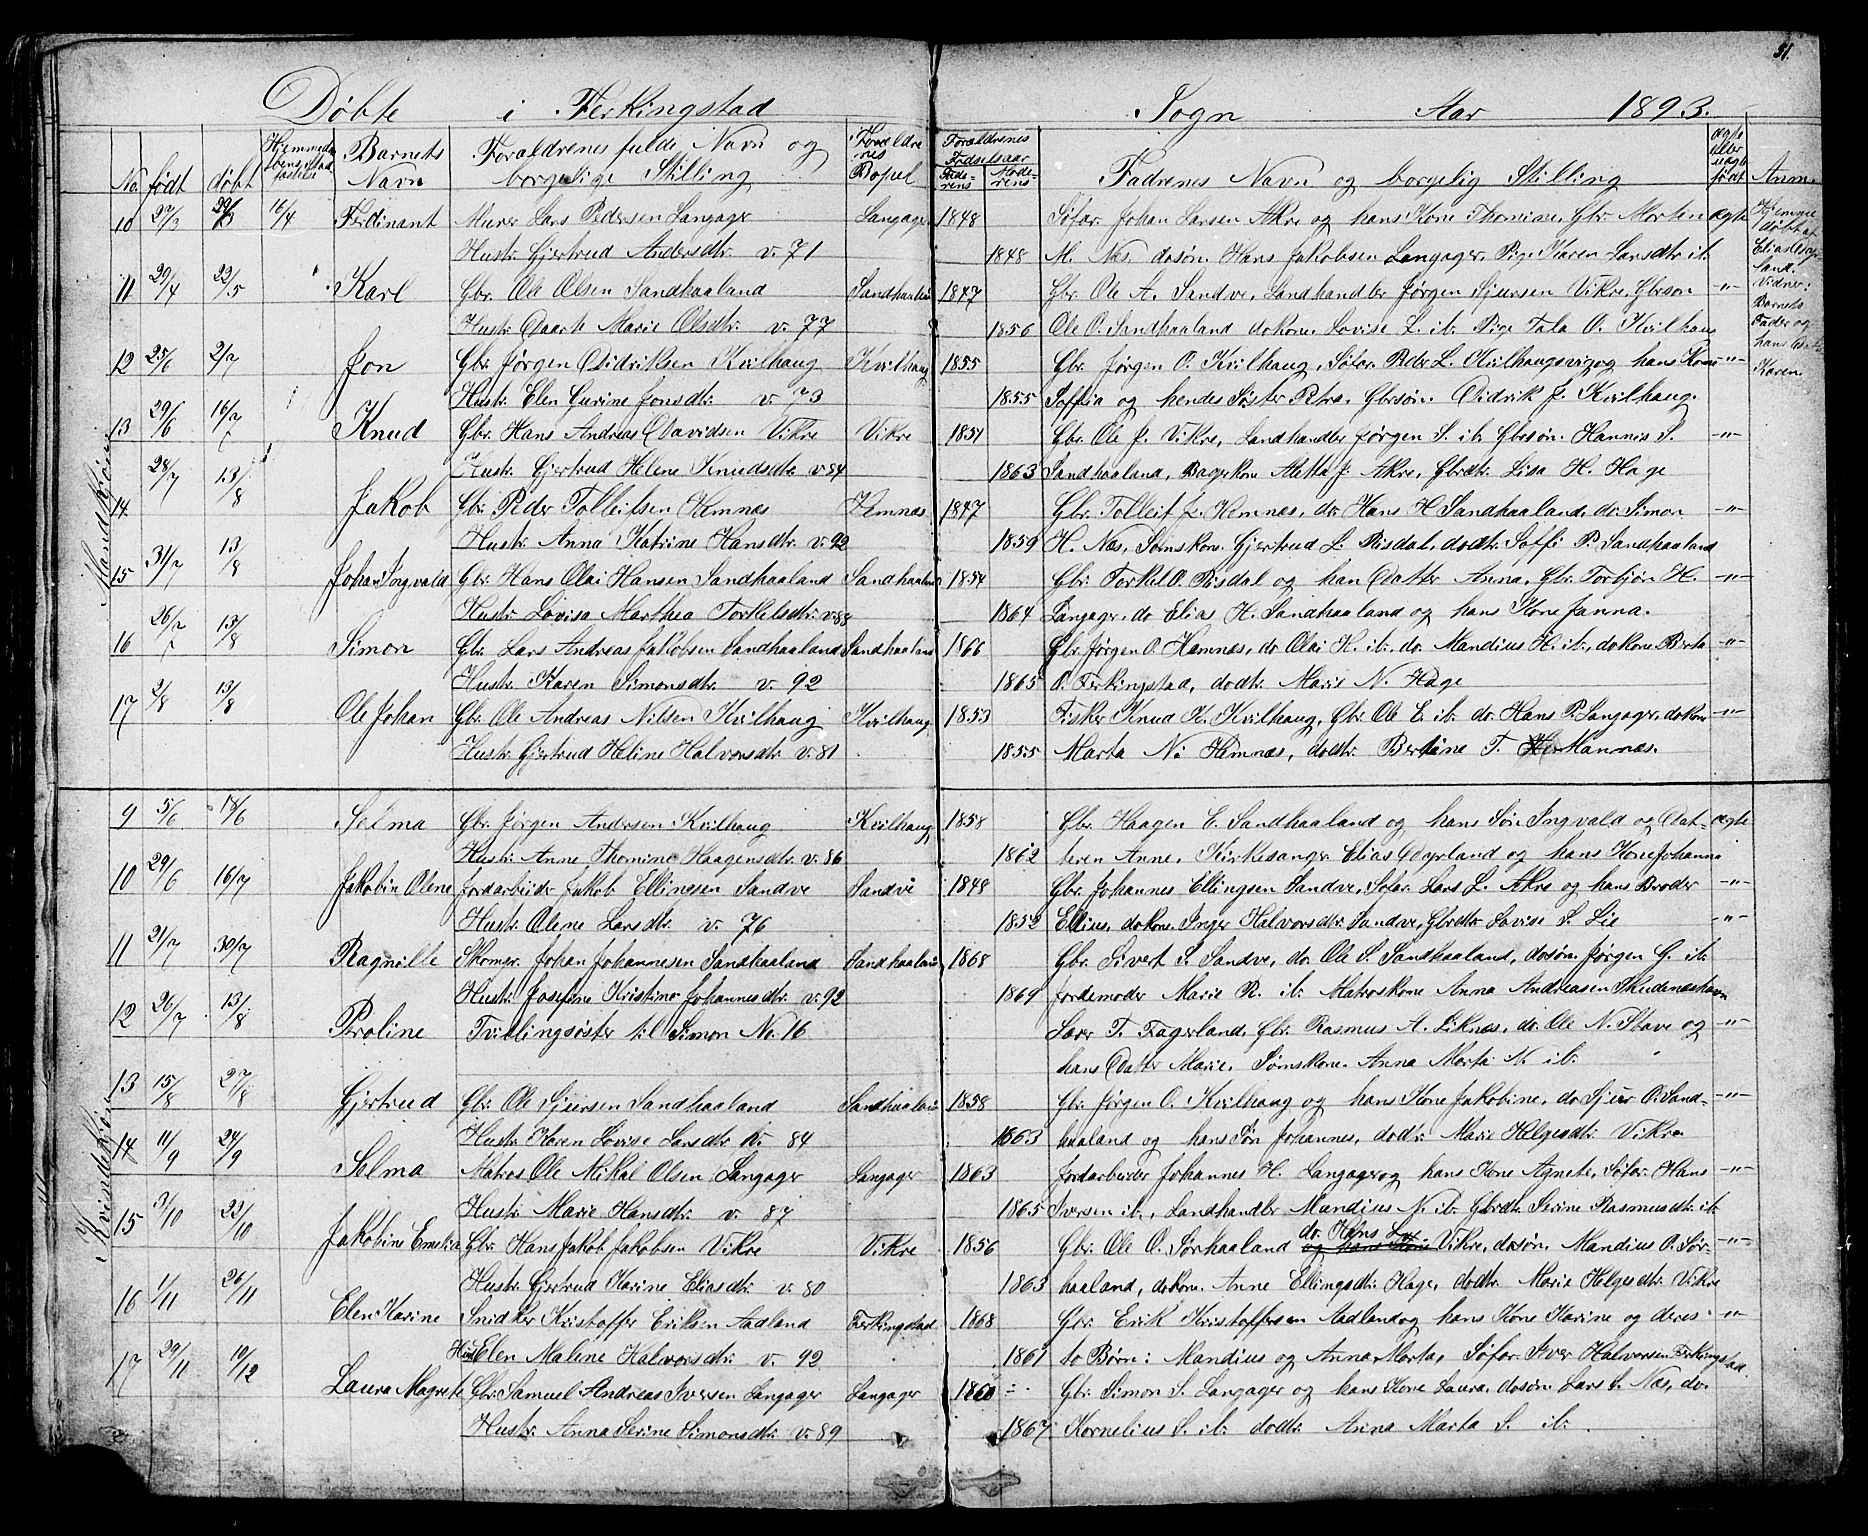 51.
Døbte i Ferkingstad Sogn Aar 1893.
No. født døbt Hjemmedaabens stadfæstelse Barnets Navn Forældrenes fulde Navn og borgelige Stilling Forældrenes Bopel Foraldrenes Fødselsaar Faderens Moderens Fadrenes Navn og borgelig Stilling ægte eller uægte født Anm.
Mandkjøn
10 27/3 16/4 Ferdinant Murer Lars Pedersen Langager Langager 1848 Søfar. Johan Larsen Akre og hans Kone Thomine, Gbr. Morten ægte Hjemme
Hustr. Gjertrud Andersdtr. v. 71 1848 M. Næs, dosøn. Hans Jakobsen Langager, Pige Karen Larsdtr. ib. døbt af
11 29/4 22/5 Karl Gbr. Ole Olsen Sandhaaland Sandhaaland 1847 Gbr. Ole A. Sandve, Landhandler Jørgen Sjursen Vikre, Gbrsøn -"- land. Vidner:
Hustr. Maria Olsdtr. v. 77 1856 Ole O. Sandhaaland dokone. Lovise L. ib. Pige Tala O. Kvilhaug Barnets Fader og
12 25/6 2/7 Jon Gbr. Jørgen Didriksen Kvilhaug Kvilhaug 1855 Gbr. Jørgen O. Kvilhaug, Søfar. Peder L. Kvilhaugsvig og hans Kone -"- hans Karen.
Hustr. Elen Gurine Jonsdtr. v. 73 1855 Soffia og hendes Søster Petra, Gbrsøn. Didrik J. Kvilhaug.
13 29/6 16/7 Knud Gbr. Hans Andreas Davidsen Vikre Vikre 1851 Gbr. Ole J. Vikre, Landhandler Jørgen S. ib. Gbrsøn. Hannes S. -"-
Hustr. Gjertrud Helene Knudsdtr. v. 84 1863 Sandhaaland, Bagerkone Metta J. Akre, Gbrdtr. Lisa H. Hage
14 28/7 13/8 Jakob Gbr. Peder Tolleifsen Hemnæs Hemnæs 1847 Gbr. Tolleif L. Hemnæs, do. Hans H. Sandhaaland, do. Simon -"-
Hustr. Anna Katrine Hansdtr. v. 92 1859 H. Næs, Sømskone. Gjertrud L. Risdal, dodtr. Soffi P. Sandhaaland
15 31/7 13/8 Johan Ingvald Gbr. Hans Olai Hansen Sandhaaland Sandhaaland 1854 Gbr. Torkel O. Risdal og han Datter Anna, Gbr. Torbjøn H. -"-
Hustr. Lovisa Marthea Torkelsdtr. v. 88 1864 Langager, do Elias H. Sandhaaland og hans Kone Janna.
16 26/7 13/8 Simon Gbr. Lars Andreas Jakobsen Sandhaaland Sandhaaland 1866 Gbr. Jørgen O. Hemnæs, do. Olai H. ib., do. Mandius H. ib., dokone Berta -"-
Hustr. Karen Simonsdtr. v. 92 1865 O. Ferkingstad, dodtr. Marie N. Hage
17 2/8 13/8 Ole Johan Gbr. Ole Andreas Nilsen Kvilhaug Kvilhaug 1853 Fisker Knud K. Kvilhaug, Gbr. Ole E. ib. do. Hans P. Langager, dokone -"-
Hustr. Gjertrud Heline Halvorsdtr. v. 81 1855 Marta N. Hemnæs, dodtr. Bertine T. Mannæs.
Kvindekjøn
9 5/6 18/6 Selma Gbr. Jørgen Andersen Kvilhaug Kvilhaug 1858 Gbr. Haagen E. Sandhaaland og hans Søn Ingvald og Dat- ægte
Hustr. Anne Thomine Haagensdtr. v. 86 1862 teren Anne, Kirkesanger Elias Dyrland og hans Kone Johanna
10 29/6 16/7 Jakobin Olene Jordarbeider Jakob Ellingsen Sandve Sandve 1848 Gbr. Johannes Ellingsen Sandve, Søfar. Lars L. Akre og hans Broder -"-
Hustr. Olene Larsdtr. v. 76 1852 Ellius, dokone. Inger Halvorsdtr. Sandve, Gbrdtr. Lovise S. Lie -"-
11 21/7 30/7 Ragnille Skomgr. Johan Johannesen Sandhaaland Sandhaaland 1868 Gbr. Sivert S. Sandve, do. Ole S. Sandhaaland, dosøn. Jørgen G. ib.
Hustr. Josefine Kristine Johannesdtr. v. 92 1869 Jordemoder Marie R. ib. Matroskone Anna Andreasen Skudeneshavn
12 26/7 13/8 Peroline Tvillingsøster til Simon No. 16 Lærer T. Fagerland, Gbr. Rasmus A. Liknes, do. Ole N. Stave og -"-
hans Datter Marie, Sømskone. Anna Marta N. ib.
13 15/8 27/8 Gjertrud Gbr. Ole Sjursen Sandhaaland Sandhaaland 1858 Gbr. Jørgen O. Kvilhaug og hans Kone Jakobine, do Sjur O. Sand- -"-
Hustr. Karen Lovise Larsdtr. v. 84 1863 haaland og hans Søn Johannes, dodtr. Marie Helgesdtr. Vikre
14 11/9 24/9 Selma Matros Ole Mikal Olsen Langager Langager 1863 Jordarbeider Johannes H. Langager og hans Kone Agnete, Søfar. Hans -"-
Hustr. Marie Hansdtr. v. 87 1865 Iversen ib., Landhandler Mandius N. ib. Gbrdtr. Serine Rasmusdtr. ib.
15 31/10 22/10 Jakobine Emelia Gbr. Hans Jakob Jakobsen Vikre Vikre 1856 Gbr. Ole O. Sørhaaland og hans Kone do. Hans L. Vikre, dosøn. Mandius O. Sør- -"-
Hustr. Gjertrud Karine Eliasdtr. v. 80 1863 haaland, dokone. Anne Ellingsdtr. Hage, dodtr. Marie Helgesdtr. Vikre
16 1/11 26/11 Elen Karine Snidker Kristoffer Eriksen Aadland Ferkingstad 1868 Gbr. Erik Kristoffersen Aadland og hans Kone Karine og deres -"-
Hust. Elen Maline Halvorsdtr. v. 92 1861 to Børn: Mandius og Anna Marta, Søfar. Iver Halvorsen Ferkingstad.
17 29/11 10/12 Laura Magrete Gbr. Samuel Andreas Iversen Langager Langager 1860 Gbr. Simon S. Langager og hans Kone Laura, dosøn. Lars S. Næs, do.
Hustr. Anna Serine Simonsdtr. v. 89 1867 Kornelius S. ib. dodtr. Anna Marta S. ib.